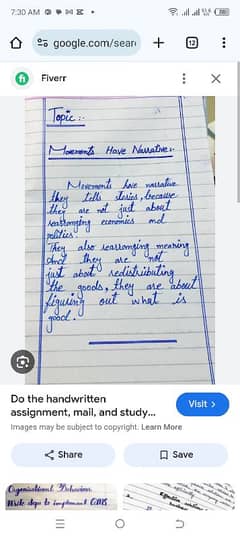 7:30 AM
google.com/sear
12
Fiverr
Topic:-
Movements Have Narrative:-
Movements have narrative
they tells stories, because
they are not just about
rearranging economics and
politics.
They also rearranging meaning
And they are not
just about redistributing
the goods, they are about
figuring out what is
good.
Do the handwritten
assignment, mail, and study...
Visit >
Images may be subject to copyright. Learn More
Share
Save
Organisational Behaviour
Write steps to implement